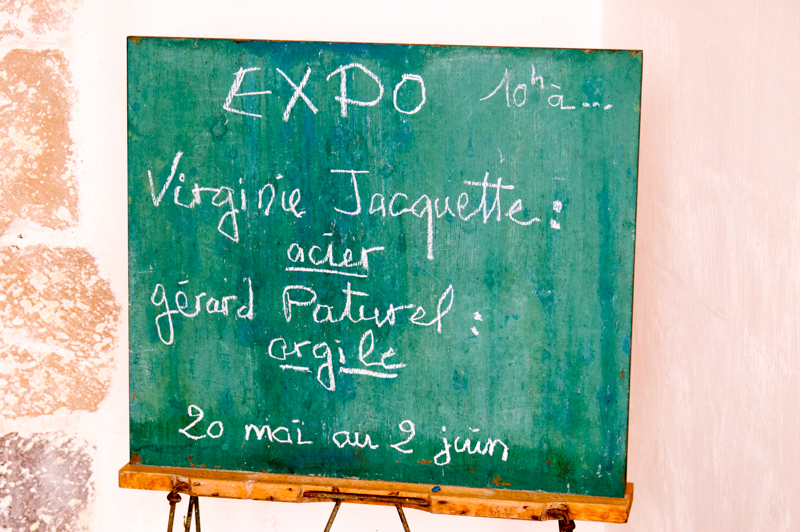 EXPO 10h à...
Virginie Jacquette :
acier
gérard Paturel :
argile
20 mai au 2 juin